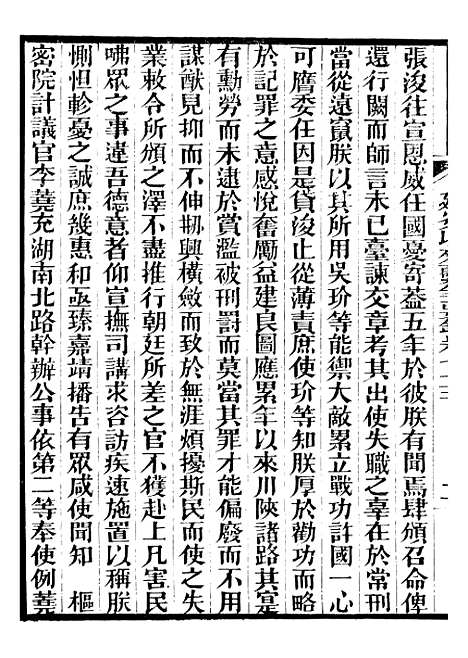 張浚往宣恩威任國憂寄葢五年於彼朕有聞焉肆頒召命俾
還行闕而師言未已臺諫交章考其出使失職之辜在於常刑
當從遠竄朕以其所用吳玠等能禦大敵累立戰功許國一心
可膺委任因是貸浚止從薄責庶使玠等知朕厚於勸功而略
於記罪之意感悅奮勵益建良圖應累年以來川陝諸路其寔
有勳勞而未逮於賞濫被刑罰而莫當其罪才能偏廢而不用
謀猷見抑而不伸刱興橫斂而致於無涯煩擾斯民而使之失
業敕令所頒之澤不盡推行朝廷所差之官不獲赴上凡害民
咈眾之事違吾德意者仰宣撫司講求咨訪疾速施置以稱朕
惻怛軫憂之誠庶幾惠和亟臻嘉靖播告有眾咸使聞知　樞
密院計議官李蕘充湖南北路幹辦公事依第二等奉使例蕘